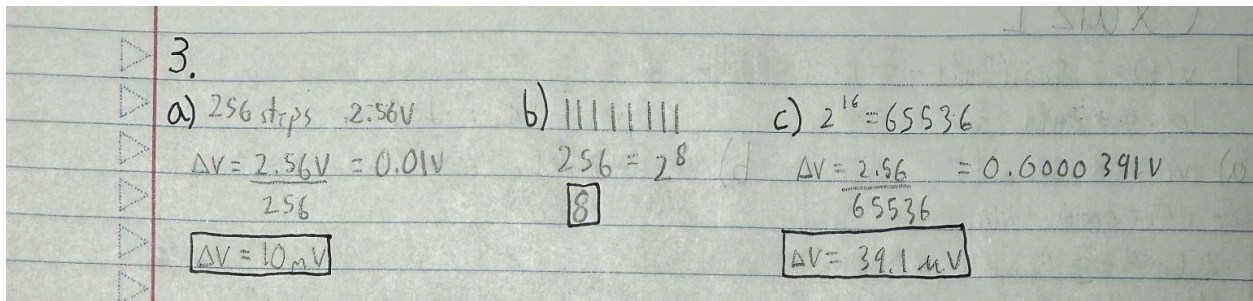 3.
a) 256 steps 2.56V
ΔV = 2.56V / 256 = 0.01V
ΔV = 10mV
b) 11111111
256 = 2^8
8
c) 2^16 = 65536
ΔV = 2.56 / 65536 = 0.0000391V
ΔV = 39.1 μV